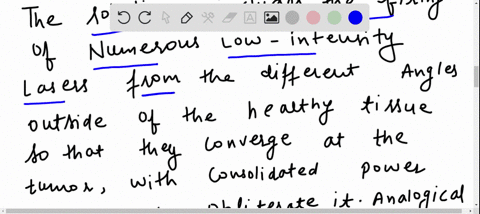 The
of Numerous Low-intensity
Lasers from the different Angles
outside of the healthy tissue
so that they converge at the
tumor, with consolidated power
obliterate it. Analogical